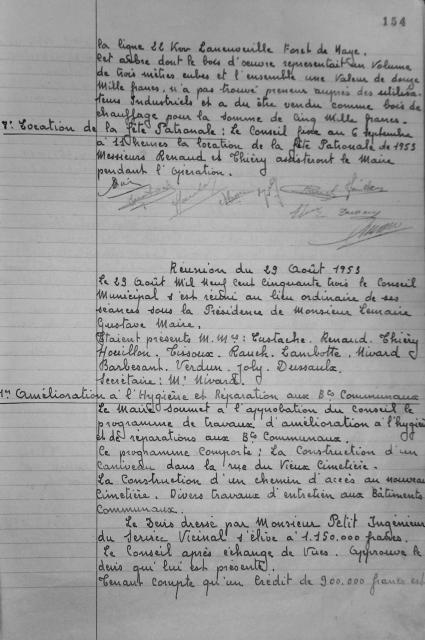 154
la ligne 22 Kvr Laneuveville Foret de Haye.
Cet arbre dont le bois d'œuvre representait un Volume
de trois mètres cubes et l'ensemble une Valeur de douze
Mille francs, n'a pas trouvé preneur auprès des utilisa-
teurs Industriels et a du être vendu comme bois de
chauffage pour la somme de Cinq Mille francs.
7: Location de la Fête Patronale: Le Conseil fixe au 6 septembre
à 11 heures la location de la fête Patronale de 1953
Messieurs Renaud et Thiéry assisteront le Maire
pendant l'opération.
Réunion du 29 Août 1953
Le 29 Août Mil Neuf Cent Cinquante trois le Conseil
Municipal s'est réuni au lieu ordinaire de ses
séances sous la Présidence de Monsieur Lemaire
Gustave Maire.
Etaient présents M.Mrs: Eustache. Renaud. Thiéry
Houillon. Tissoux. Rauch. Lambotte. Nivard
Barbesant. Verdun. Joly. Dussaulx.
Secrétaire: Mr Nivard.
1º Amélioration à l'Hygiène et Réparation aux Bts Communaux
Le Maire soumet à l'approbation du conseil le
programme de travaux, d'amélioration à l'hygiène
et de réparations aux Bts Communaux.
Ce programme comporte: La Construction d'un
Caniveau dans la rue du Vieux Cimetière.
La Construction d'un chemin d'accès au nouveau
Cimetière. Divers travaux d'entretien aux Bâtiments
Communaux.
Le Devis dressé par Monsieur Petit Ingénieur
du Service Vicinal s'élève à 1.150.000 francs.
Le Conseil après échange de Vues. Approuve le
devis qui lui est présenté.
Tenant compte qu'un Crédit de 900.000 francs est